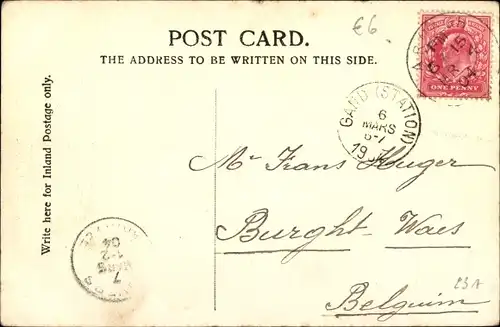 £6
POST CARD.
THE ADDRESS TO BE WRITTEN ON THIS SIDE.
ONE PENNY
GAND (STATION)
6
MARS
6-7
Mr Frans Huger
Burght-Waes
Belguim
23A
Write here for Inland Postage only.
7
MARS
04